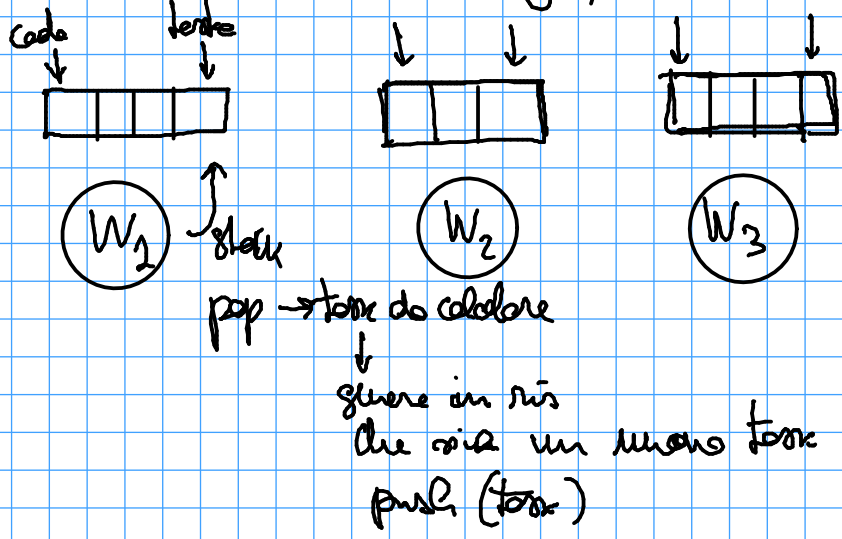 coda testa
W1 W2 W3
stack
pop → task da calcolare
↓
genera un ris
che sia un nuovo task
push (task)